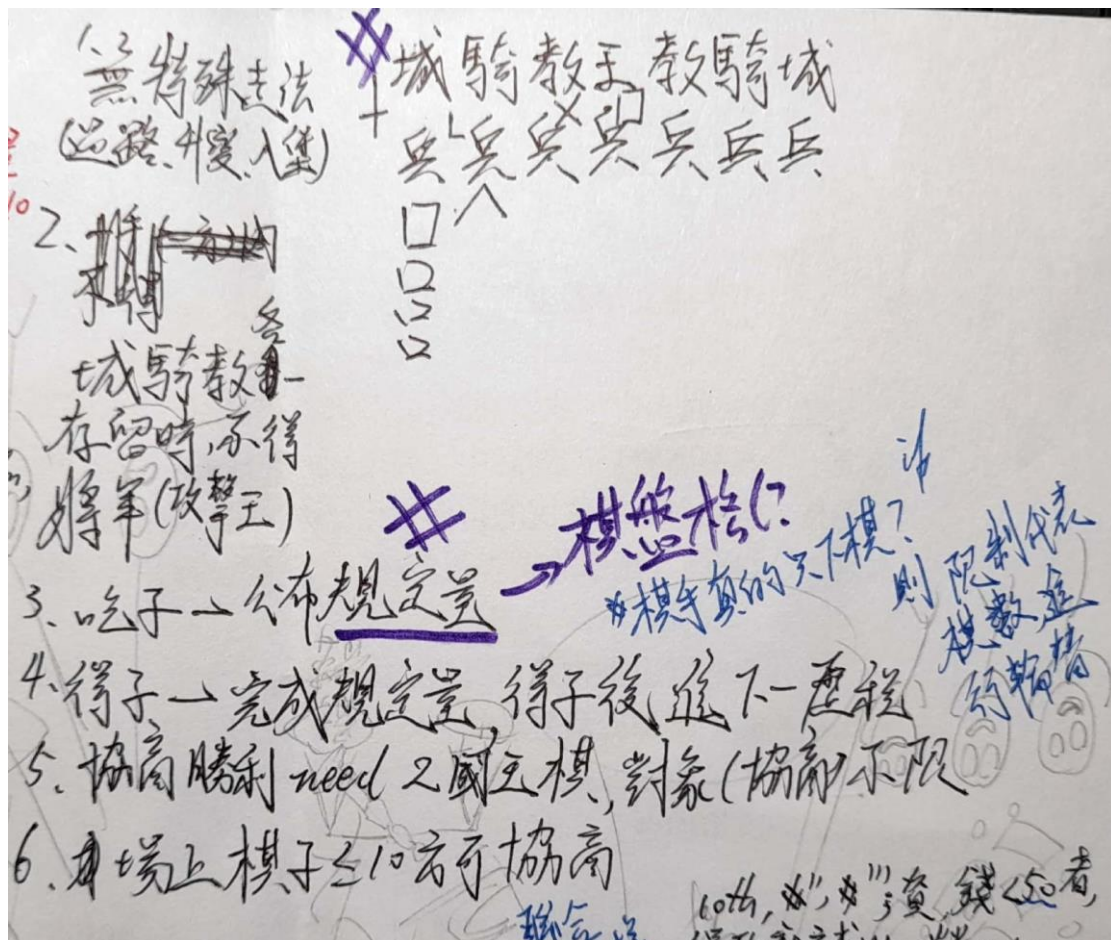 1、
無特殊走法
(過路、升變、入堡)
城騎教王教騎城
兵兵兵兵兵兵兵
2、
城騎教各一
存留時,不得
將軍(攻擊王)
3、吃子→公布規定量
→棋盤格(?
*棋手真的只下棋?
則限制代表
棋數進
4、得子→完成規定量,得子後進下一歷程
5、協商勝利need 2國王棋,對象(協商)不限
6、場上棋子≤10方可協商
聯合
資,錢<50者,